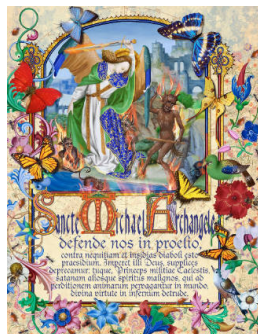 Sancte Michael Archangele
defende nos in proelio,
contra nequitiam et insidias diaboli esto
praesidium. Imperet illi Deus, supplices
deprecamur, tuque, Princeps militiae Caelestis,
satanam aliosque spiritus malignos, qui ad
perditionem animarum pervagantur in mundo,
divina virtute in infernum detrude.